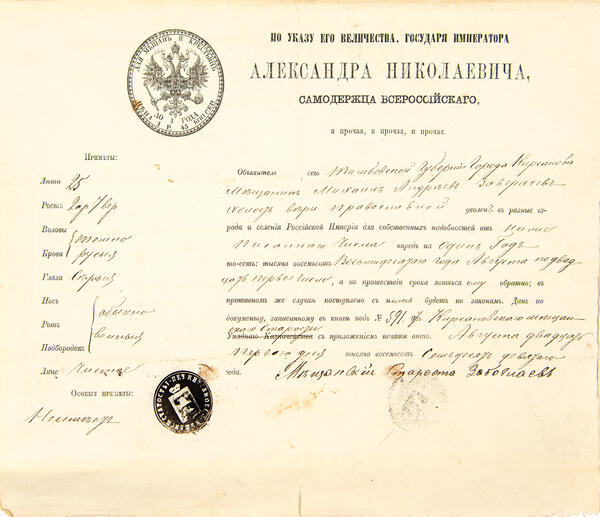 ДЛЯ МѢЩАН И КРЕСТЬЯН
ДО 1 ГОДА
ЦѢНА 1 Р. 45 КОП. СЕР.
ПО УКАЗУ ЕГО ВЕЛИЧЕСТВА, ГОСУДАРЯ ИМПЕРАТОРА
АЛЕКСАНДРА НИКОЛАЕВИЧА,
САМОДЕРЖЦА ВСЕРОССІЙСКАГО,
и прочая, и прочая, и прочая.
Примѣты:
Лѣта 25
Ростъ 2 ар 7 вер
Волосы
Брови
темно
русыя
Глаза Серыя
Носъ
Ротъ
Подбородокъ
обыкно
венныя
Лице Чистое
Особыя примѣты:
Объявитель сего Тамбовской Губерніи Города Кирсанова
Мѣщанинъ Михаилъ Андреевъ
холостъ вѣры православной уволенъ въ разные го-
рода и селенія Россійской Имперіи для собственныхъ надобностей отъ ниже
писаннаго числа впредь на Одинъ Годъ
то-есть: тысяча восемьсотъ Восьмидесятаго года Августа по двад
цать первое число, а по прошествіи срока явиться ему обратно; въ
противномъ же случаѣ поступлено съ нимъ будетъ по законамъ. Данъ по
документу, записанному въ книгѣ подъ № 591. Кирсановскаго мѣщан
скаго Старосты
Уѣзднаго Казначейства съ приложеніемъ печати онаго. Августа двадцать
перваго дня тысяча восемьсотъ Семьдесятъ девятаго
года. Мѣщанскій Староста